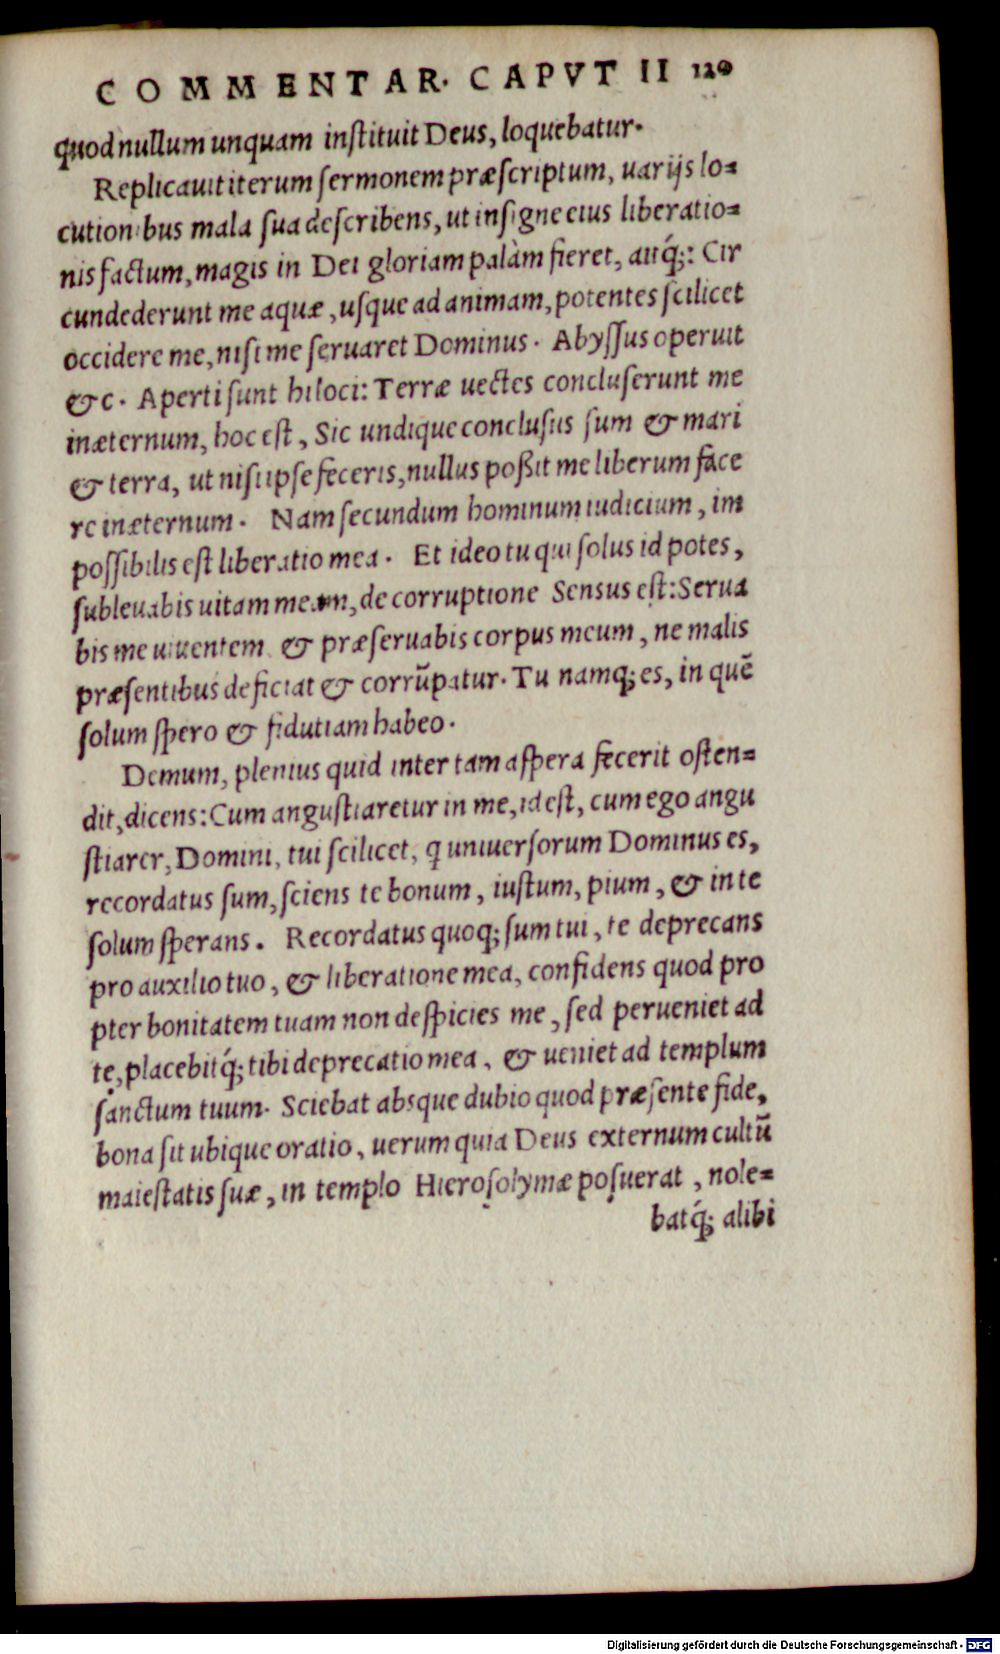 COMMENTAR. CAPVT II 120
quod nullum unquam instituit Deus, loquebatur.
Replicauit iterum sermonem præscriptum, uarijs lo=
cutionibus mala sua describens, ut insigne eius liberatio=
nis factum, magis in Dei gloriam palàm fieret, aitq́;: Cir
cundederunt me aquæ, usque ad animam, potentes scilicet
occidere me, nisi me seruaret Dominus. Abyssus operuit
&c. Aperti sunt hi loci: Terræ uectes concluserunt me
inæternum, hoc est, Sic undique conclusus sum & mari
& terra, ut nisi ipse feceris, nullus poßit me liberum face
re inæternum. Nam secundum hominum iudicium, im
possibilis est liberatio mea. Et ideo tu qui solus id potes,
subleuabis uitam meam, de corruptione Sensus est: Serua
bis me uiuentem & præseruabis corpus meum, ne malis
præsentibus deficiat & corrũpatur. Tu namq; es, in quẽ
solum spero & fidutiam habeo.
Demum, plenius quid inter tam aspera fecerit osten=
dit, dicens: Cum angustiaretur in me, id est, cum ego angu
stiarer, Domini, tui scilicet, q uniuersorum Dominus es,
recordatus sum, sciens te bonum, iustum, pium, & in te
solum sperans. Recordatus quoq; sum tui, te deprecans
pro auxilio tuo, & liberatione mea, confidens quod pro
pter bonitatem tuam non despicies me, sed perueniet ad
te, placebitq́; tibi deprecatio mea, & ueniet ad templum
sanctum tuum. Sciebat absque dubio quod præsente fide,
bona sit ubique oratio, uerum quia Deus externum cultũ
maiestatis suæ, in templo Hierosolymæ posuerat, nole=
batq́; alibi
Digitalisierung gefördert durch die Deutsche Forschungsgemeinschaft - DFG